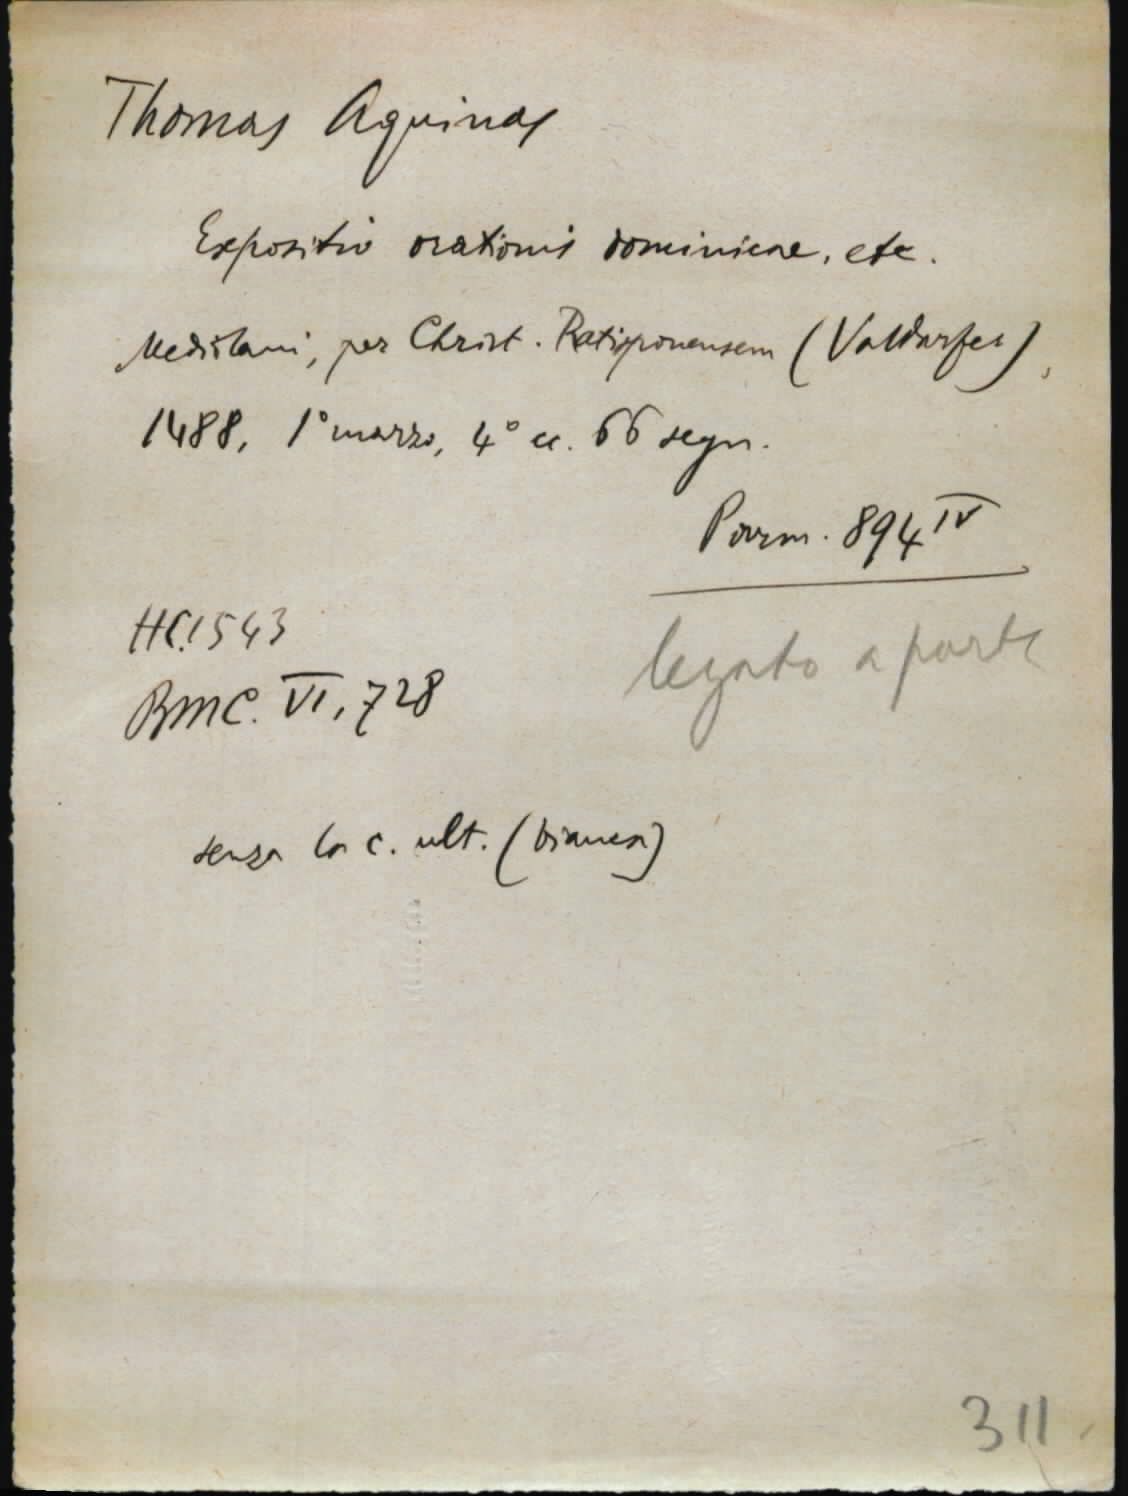 Thomas Aquinas
Expositio orationis dominicae, etc.
Mediolani, per Christ. Ratisponensem (Valdarfer),
1488, 1° marzo, 4° cc. 66 segn.
Parm. 894 IV
HC.1543
legato a parte
BMC. VI, 728
senza la c. ult. (bianca)
311